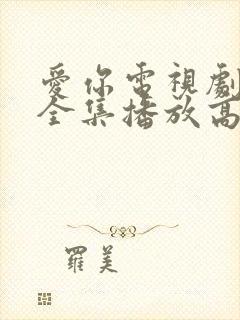 愛你電視劇
全集播放高
羅美